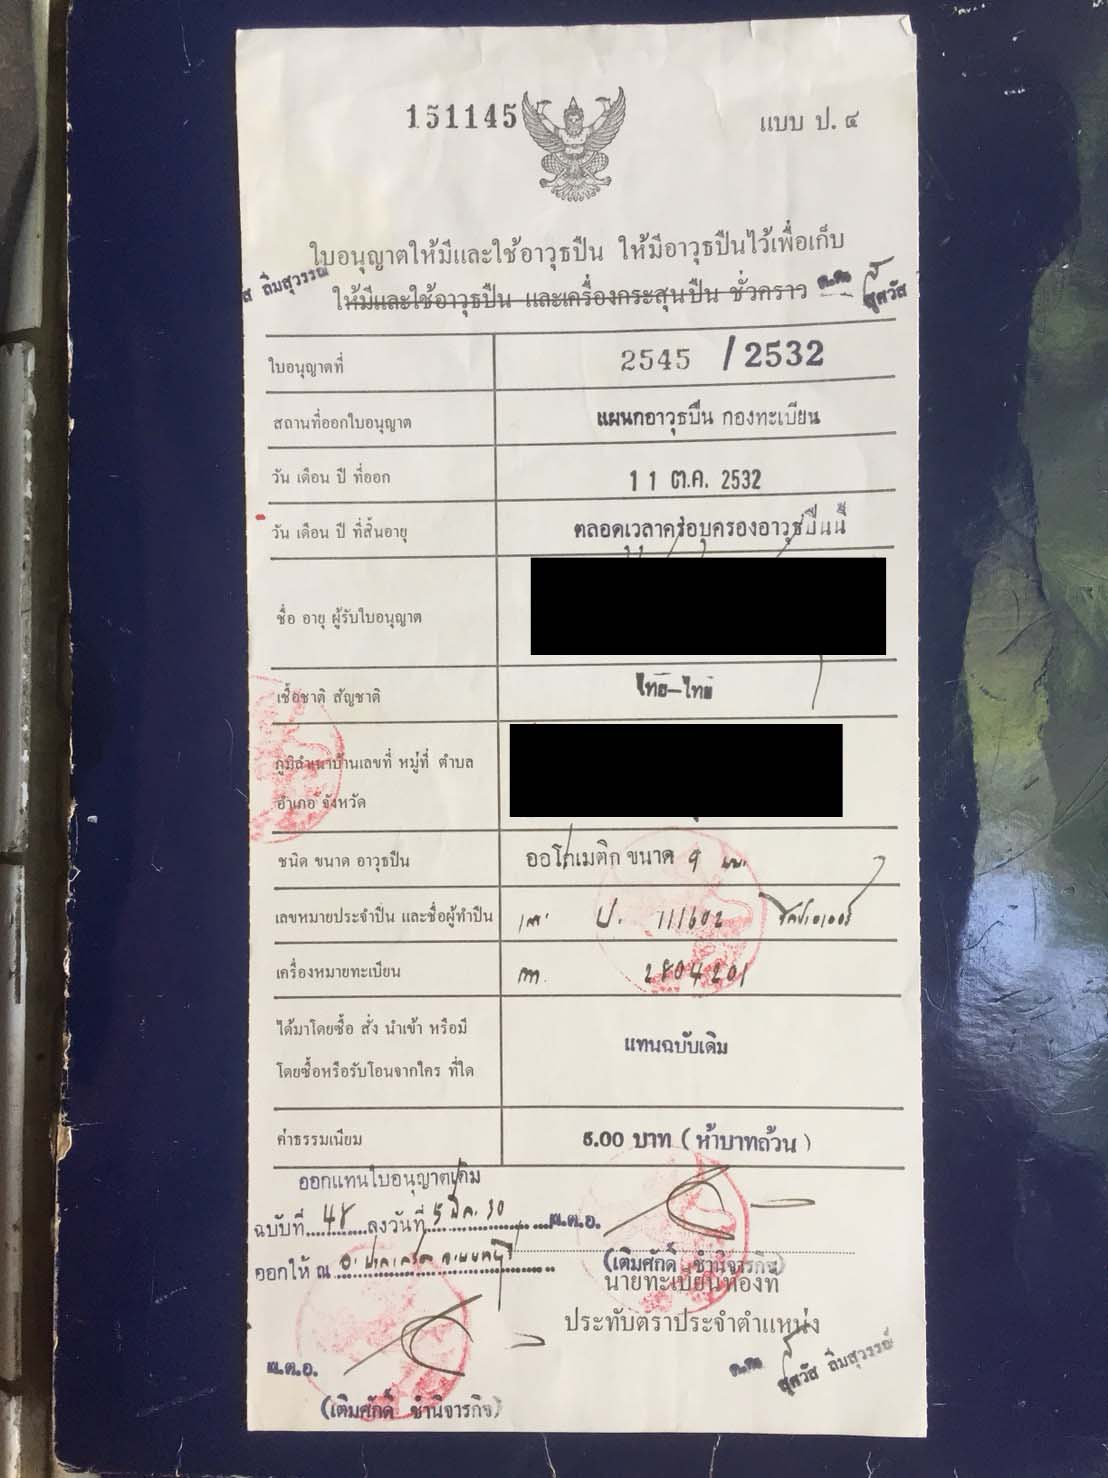 151145
แบบ ป. ๔
ใบอนุญาตให้มีและใช้อาวุธปืน ให้มีอาวุธปืนไว้เพื่อเก็บ
ส ลิ่มสุวรรณ
ให้มีและใช้อาวุธปืน และเครื่องกระสุนปืน ชั่วคราว
สุควัส
ใบอนุญาตที่ 2545 / 2532
สถานที่ออกใบอนุญาต แผนกอาวุธปืน กองทะเบียน
วัน เดือน ปี ที่ออก 11 ต.ค. 2532
วัน เดือน ปี ที่สิ้นอายุ ตลอดเวลาครอบครองอาวุธปืนนี้
ชื่อ อายุ ผู้รับใบอนุญาต
เชื้อชาติ สัญชาติ ไทย-ไทย
ภูมิลำเนาบ้านเลขที่ หมู่ที่ ตำบล
อำเภอ จังหวัด
ชนิด ขนาด อาวุธปืน ออโตเมติก ขนาด 9 มม.
เลขหมายประจำปืน และชื่อผู้ทำปืน ป. 111602
เครื่องหมายทะเบียน กท. 2804201
ได้มาโดยซื้อ สั่ง นำเข้า หรือมี
โดยซื้อหรือรับโอนจากใคร ที่ใด
แทนฉบับเดิม
ค่าธรรมเนียม 5.00 บาท ( ห้าบาทถ้วน )
ออกแทนใบอนุญาตเดิม
ฉบับที่ 48 ลงวันที่ 5 มี.ค. 30
พ.ต.อ.
ออกให้ ณ
(เติมศักดิ์ ชำนิจารกิจ)
นายทะเบียนท้องที่
ประทับตราประจำตำแหน่ง
พ.ต.อ.
(เติมศักดิ์ ชำนิจารกิจ)
สุควัส ลิ่มสุวรรณ์